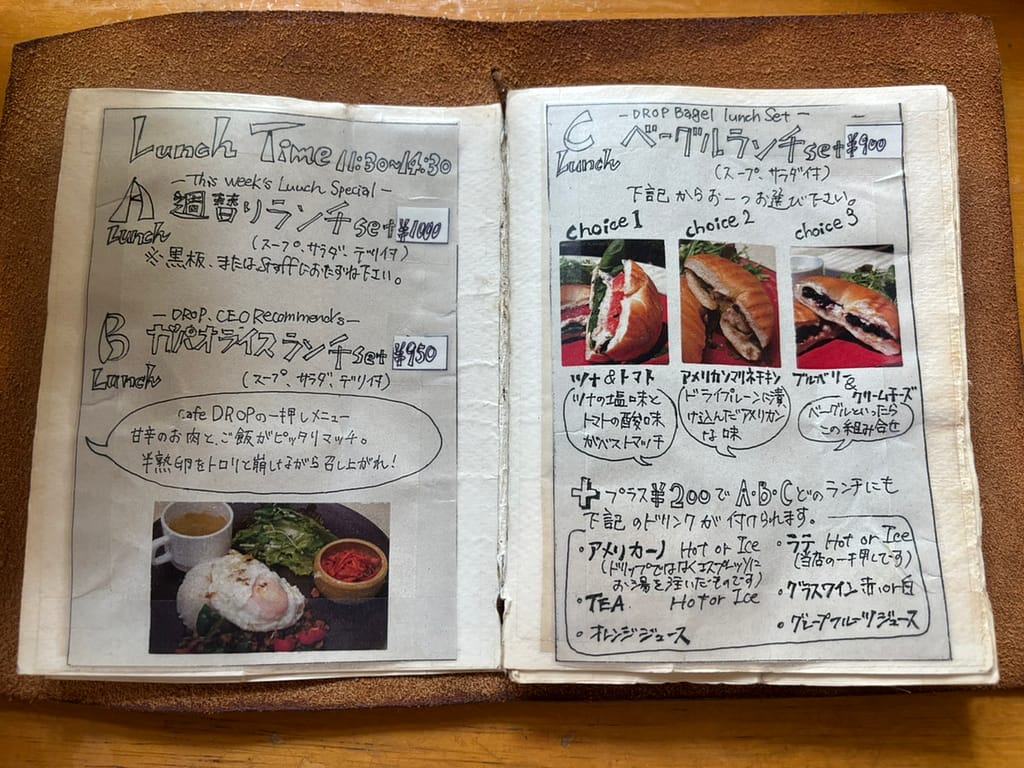 Lunch Time 11:30~14:30
— This week's Lunch Special —
A Lunch
週替りランチset ¥1000
(スープ、サラダ、デリ付)
※黒板、またはStaffにおたずね下さい。
— DROP、CEO Recommends —
B Lunch
ガパオライスランチset ¥950
(スープ、サラダ、デリ付)
cafe DROPの一押しメニュー
甘辛のお肉と、ご飯がピッタリマッチ。
半熟卵をトロリと崩しながら召し上がれ!
— DROP Bagel lunch Set —
C Lunch
ベーグルランチset ¥900
(スープ、サラダ付)
下記からお一つお選び下さい。
choice 1
choice 2
choice 3
ツナ&トマト
ツナの塩味と
トマトの酸味
がベストマッチ
アメリカンマリネチキン
ドライプレーンに漬
け込んだアメリカン
な味
ブルーベリー&
クリームチーズ
ベーグルといったら
この組み合せ
+プラス¥200でA・B・Cどのランチにも
下記のドリンクが付けられます。
・アメリカーノ Hot or Ice
(ドリップではなくエスプレッソに
お湯を注いだものです)
・TEA. Hot or Ice
・オレンジジュース
・ラテ Hot or Ice
(当店の一押しです)
・グラスワイン 赤or白
・グレープフルーツジュース